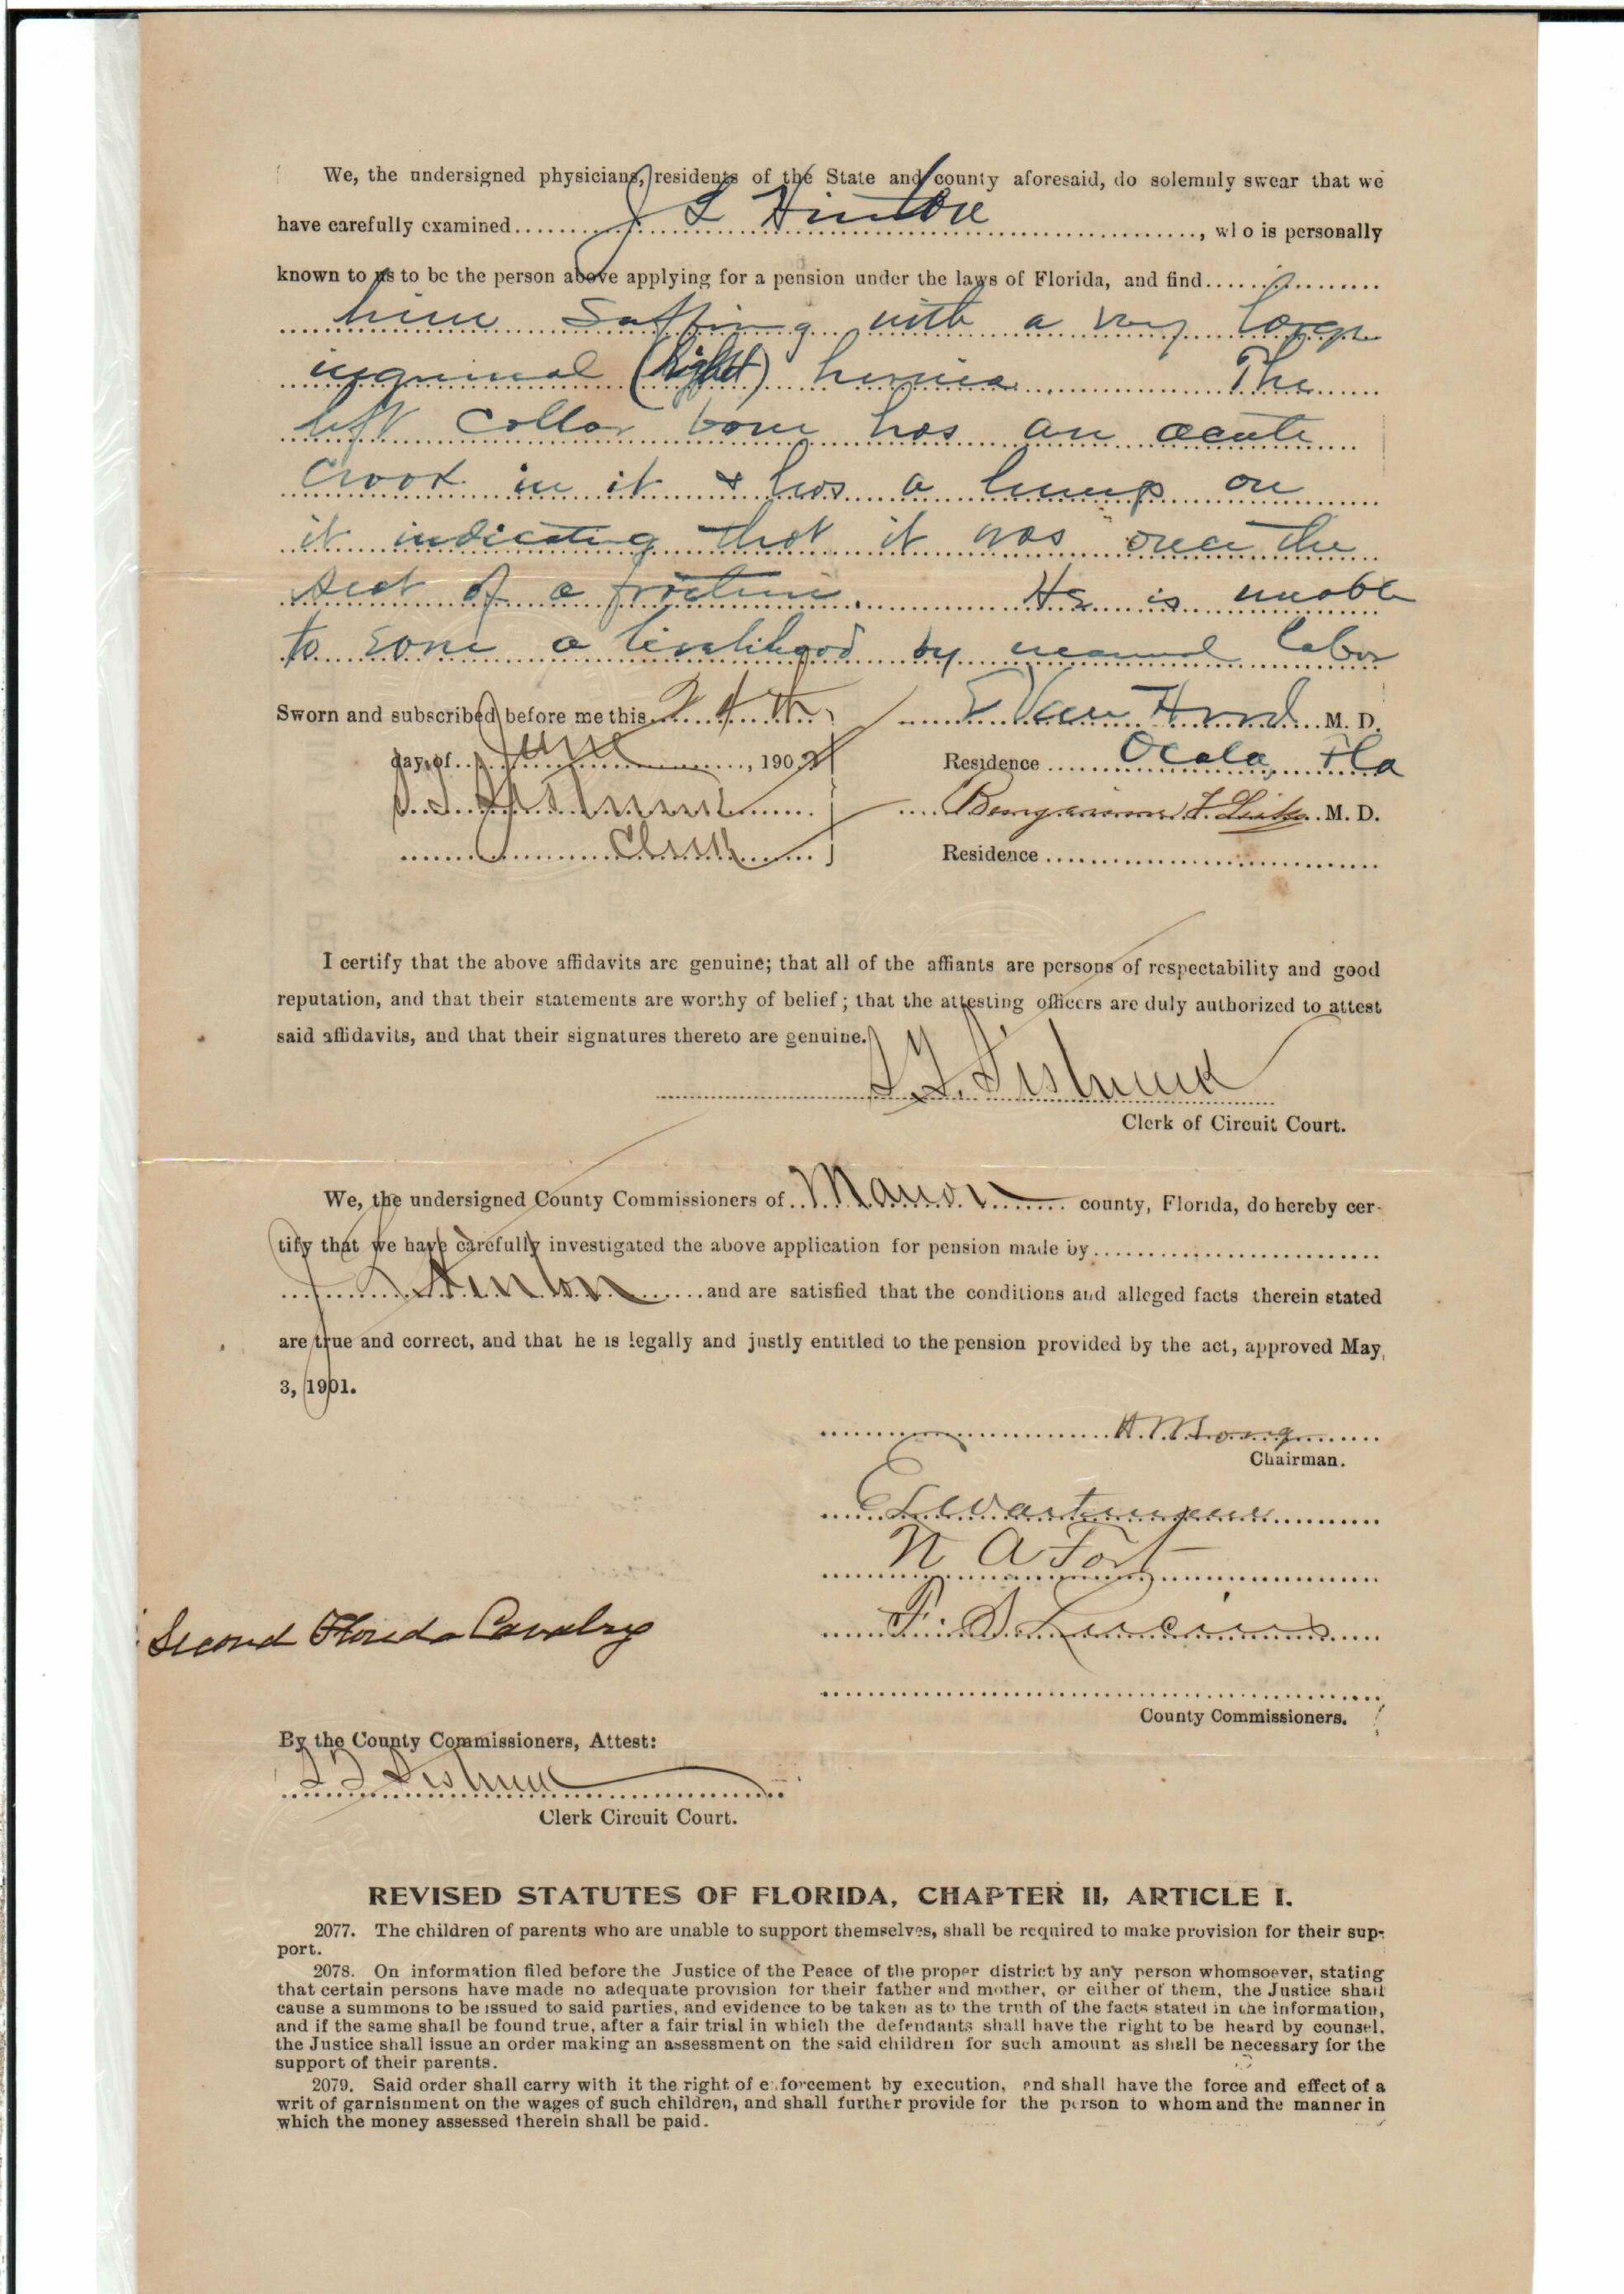 We, the undersigned physicians, residents of the State and county aforesaid, do solemnly swear that we
have carefully examined J L Hinton, who is personally
known to us to be the person above applying for a pension under the laws of Florida, and find
him suffering with a very large
inguinal (right) hernia. The
left collar bone has an acute
crook in it & has a hump on
it indicating that it was once the
seat of a fracture. He is unable
to earn a livelihood by manual labor
Sworn and subscribed before me this 24th E Van Hood M. D.
day of June, 1902 Residence Ocala, Fla
S. T. Sistrunk Benjamin F. M. D.
Clerk Residence
I certify that the above affidavits are genuine; that all of the affiants are persons of respectability and good
reputation, and that their statements are worthy of belief; that the attesting officers are duly authorized to attest
said affidavits, and that their signatures thereto are genuine.
S. T. Sistrunk
Clerk of Circuit Court.
We, the undersigned County Commissioners of Marion county, Florida, do hereby cer-
tify that we have carefully investigated the above application for pension made by
J L Hinton and are satisfied that the conditions and alleged facts therein stated
are true and correct, and that he is legally and justly entitled to the pension provided by the act, approved May
3, 1901.
Chairman.
E L Wartmann
N A Fort
Second Florida Cavalry
County Commissioners.
By the County Commissioners, Attest:
S T Sistrunk
Clerk Circuit Court.
REVISED STATUTES OF FLORIDA, CHAPTER II, ARTICLE I.
2077. The children of parents who are unable to support themselves, shall be required to make provision for their sup-
port.
2078. On information filed before the Justice of the Peace of the proper district by any person whomsoever, stating
that certain persons have made no adequate provision for their father and mother, or either of them, the Justice shall
cause a summons to be issued to said parties, and evidence to be taken as to the truth of the facts stated in the information,
and if the same shall be found true, after a fair trial in which the defendants shall have the right to be heard by counsel,
the Justice shall issue an order making an assessment on the said children for such amount as shall be necessary for the
support of their parents.
2079. Said order shall carry with it the right of enforcement by execution, and shall have the force and effect of a
writ of garnishment on the wages of such children, and shall further provide for the person to whom and the manner in
which the money assessed therein shall be paid.